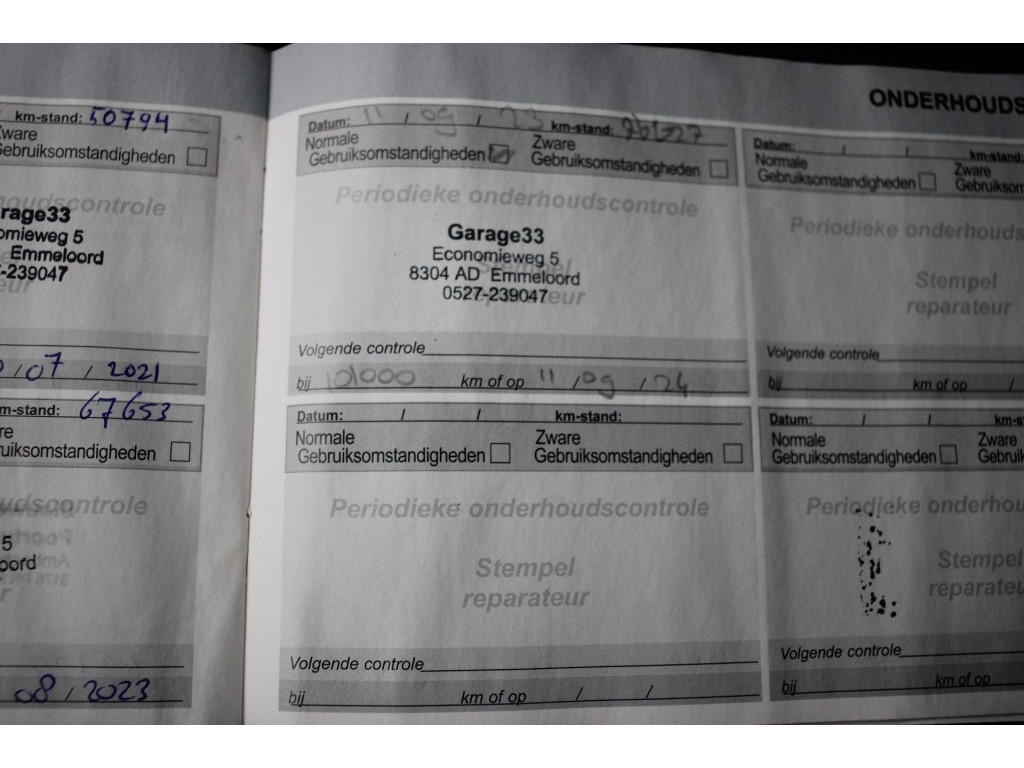 km-stand: 50794
Zware
Gebruiksomstandigheden
Garage33
Economieweg 5
Emmeloord
-239047
07 / 2021
km-stand: 67653
Gebruiksomstandigheden
houdscontrole
5
oord
08 / 2023
ONDERHOUDS
Datum: 11 / 09 / 23 km-stand:
Normale Zware
Gebruiksomstandigheden Gebruiksomstandigheden
Periodieke onderhoudscontrole
Garage33
Economieweg 5
Stempel
8304 AD Emmeloord
0527-239047
Volgende controle
bij 101000 km of op 11 / 09 / 24
Datum: / / km-stand:
Normale Zware
Gebruiksomstandigheden Gebruiksomstandigheden
Periodieke onderhoudscontrole
Stempel
reparateur
Volgende controle
bij km of op / /
Datum: / / km-stand:
Normale Zware
Gebruiksomstandigheden Gebruiksom
Periodieke onderhouds
Stempel
reparateur
Volgende controle
bij km of op /
Datum: / / km-s
Normale Zware
Gebruiksomstandigheden Gebruik
Periodieke onderhouds
Stempel
reparateu
Volgende controle
bij km of op